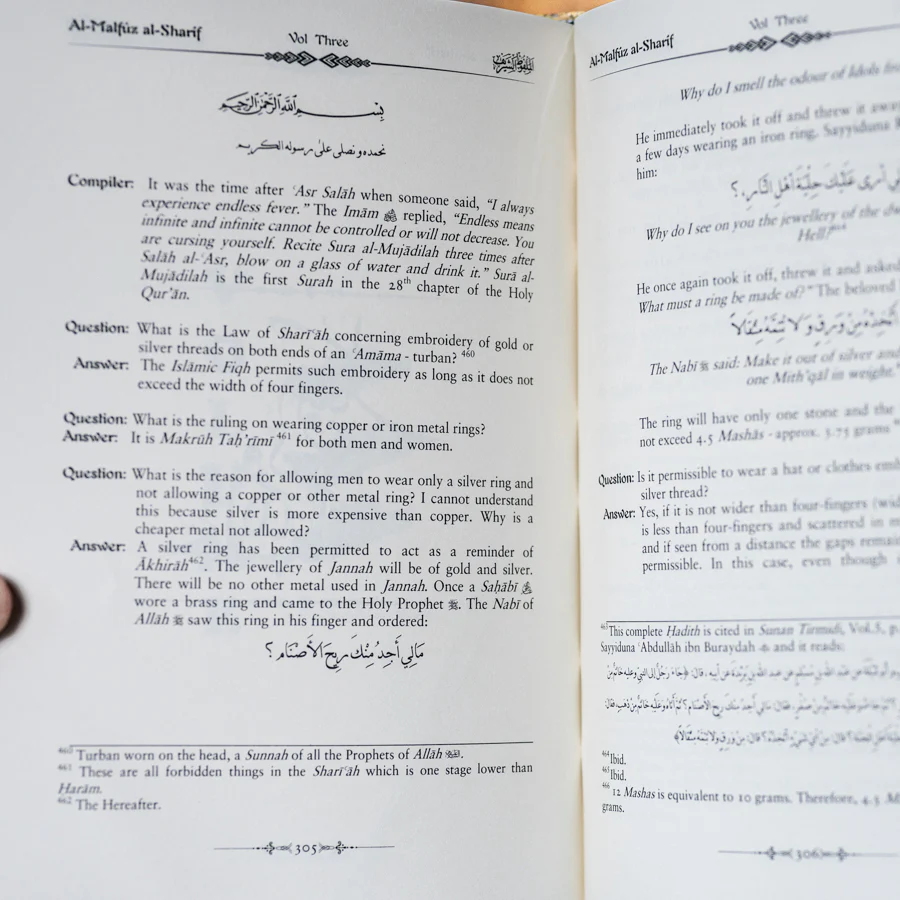 Al-Malfūz al-Sharīf
Vol Three
بِسْمِ اللهِ الرَّحْمٰنِ الرَّحِيْمِ
نحمده و نصلى على رسوله الكريم
Compiler: It was the time after ʿAsr Salāh when someone said, “I always
experience endless fever.” The Imām replied, “Endless means
infinite and infinite cannot be controlled or will not decrease. You
are cursing yourself. Recite Sura al-Mujādilah three times after
Salāh al-ʿAsr, blow on a glass of water and drink it.” Surā al-
Mujādilah is the first Surah in the 28th chapter of the Holy
Qur’ān.
Question: What is the Law of Sharīʿāh concerning embroidery of gold or
silver threads on both ends of an ʿAmāma - turban? 460
Answer: The Islāmic Fiqh permits such embroidery as long as it does not
exceed the width of four fingers.
Question: What is the ruling on wearing copper or iron metal rings?
Answer: It is Makrūh Taḥ’rīmī 461 for both men and women.
Question: What is the reason for allowing men to wear only a silver ring and
not allowing a copper or other metal ring? I cannot understand
this because silver is more expensive than copper. Why is a
cheaper metal not allowed?
Answer: A silver ring has been permitted to act as a reminder of
Ākhirāh462. The jewellery of Jannah will be of gold and silver.
There will be no other metal used in Jannah. Once a Saḥābī
wore a brass ring and came to the Holy Prophet ﷺ. The Nabī of
Allāh ﷺ saw this ring in his finger and ordered:
مَالِي أَجِدُ مِنْكَ رِيحَ الأَصْنَامِ؟
460 Turban worn on the head, a Sunnah of all the Prophets of Allāh
461 These are all forbidden things in the Sharīʿāh which is one stage lower than
Harām.
462 The Hereafter.
305
Al-Malfūz al-Sharīf
Vol Three
Why do I smell the odour of Idols
He immediately took it off and threw it
a few days wearing an iron ring. Sayyiduna
him:
أَرَى عَلَيْكَ حِلْيَةَ أَهْلِ النَّارِ؟
Why do I see on you the jewellery of the
Hell?
He once again took it off, threw it and asked
What must a ring be made of?” The beloved
مِنْ وَرِقٍ وَلَا تُتِمَّهُ مِثْقَالاً
The Nabī ﷺ said: Make it out of silver and
one Mith’qāl in weight.”
The ring will have only one stone and the
not exceed 4.5 Mashās - approx. 3.75 grams
Question: Is it permissible to wear a hat or clothes
silver thread?
Answer: Yes, if it is not wider than four-fingers
is less than four-fingers and scattered in
and if seen from a distance the gaps
permissible. In this case, even though
This complete Hadith is cited in Sunan Tirmidi, Vol.5, p.
Sayyiduna ʿAbdullāh ibn Buraydah and it reads:
464 Ibid.
465 Ibid.
466 12 Mashas is equivalent to 10 grams. Therefore, 4.5
grams.
306